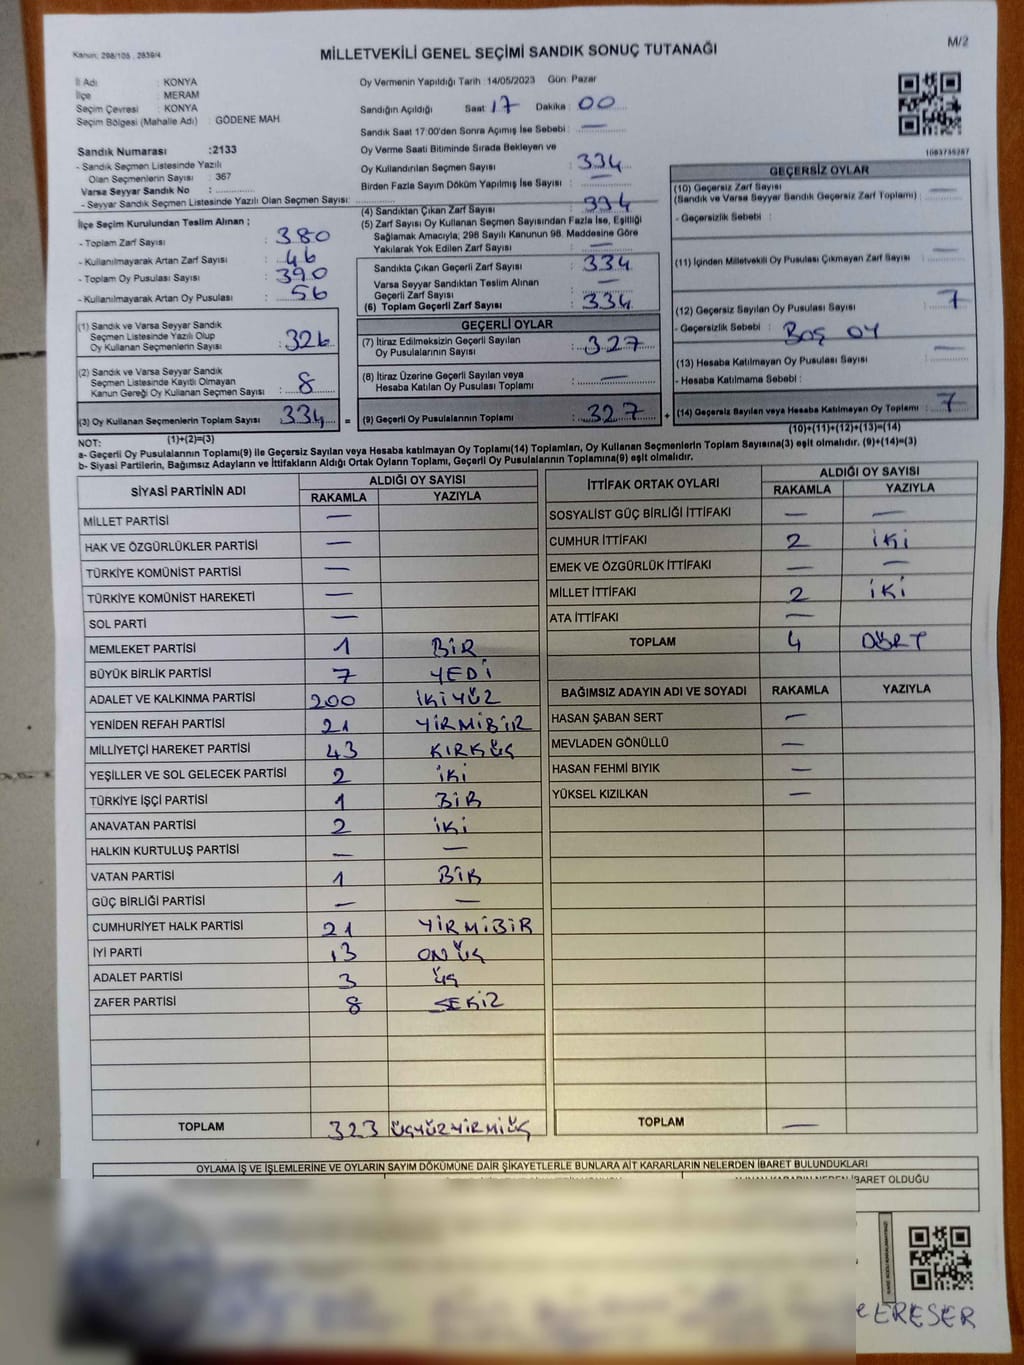 Kanun: 298/105 , 2839/4
MİLLETVEKİLİ GENEL SEÇİMİ SANDIK SONUÇ TUTANAĞI
M/2
İl Adı : KONYA
İlçe : MERAM
Seçim Çevresi : KONYA
Seçim Bölgesi (Mahalle Adı) : GÖDENE MAH
Sandık Numarası :2133
- Sandık Seçmen Listesinde Yazılı
Olan Seçmenlerin Sayısı : 367
Varsa Seyyar Sandık No :
- Seyyar Sandık Seçmen Listesinde Yazılı Olan Seçmen Sayısı :
İlçe Seçim Kurulundan Teslim Alınan ;
- Toplam Zarf Sayısı : 380
- Kullanılmayarak Artan Zarf Sayısı : 46
- Toplam Oy Pusulası Sayısı : 390
- Kullanılmayarak Artan Oy Pusulası : 56
(1) Sandık ve Varsa Seyyar Sandık
Seçmen Listesinde Yazılı Olup
Oy Kullanan Seçmenlerin Sayısı : 326
(2) Sandık ve Varsa Seyyar Sandık
Seçmen Listesinde Kayıtlı Olmayan
Kanun Gereği Oy Kullanan Seçmen Sayısı : 8
(3) Oy Kullanan Seçmenlerin Toplam Sayısı : 334 =
(1)+(2)=(3)
Oy Vermenin Yapıldığı Tarih : 14/05/2023 Gün: Pazar
Sandığın Açıldığı Saat : 17 Dakika : 00
Sandık Saat 17:00'den Sonra Açımış İse Sebebi : —
Oy Verme Saati Bitiminde Sırada Bekleyen ve
Oy Kullandırılan Seçmen Sayısı : 334
Birden Fazla Sayım Döküm Yapılmış İse Sayısı : —
(4) Sandıktan Çıkan Zarf Sayısı : 334
(5) Zarf Sayısı Oy Kullanan Seçmen Sayısından Fazla İse, Eşitliği
Sağlamak Amacıyla; 298 Sayılı Kanunun 98. Maddesine Göre
Yakılarak Yok Edilen Zarf Sayısı : —
Sandıkta Çıkan Geçerli Zarf Sayısı : 334
Varsa Seyyar Sandıktan Teslim Alınan
Geçerli Zarf Sayısı : —
(6) Toplam Geçerli Zarf Sayısı : 334
GEÇERLİ OYLAR
(7) İtiraz Edilmeksizin Geçerli Sayılan
Oy Pusulalarının Sayısı : 327
(8) İtiraz Üzerine Geçerli Sayılan veya
Hesaba Katılan Oy Pusulası Toplamı : —
(9) Geçerli Oy Pusulalarının Toplamı : 327 +
1083755287
GEÇERSİZ OYLAR
(10) Geçersiz Zarf Sayısı : —
(Sandık ve Varsa Seyyar Sandık Geçersiz Zarf Toplamı)
- Geçersizlik Sebebi :
(11) İçinden Milletvekili Oy Pusulası Çıkmayan Zarf Sayısı : —
(12) Geçersiz Sayılan Oy Pusulası Sayısı : 7
- Geçersizlik Sebebi : Boş OY
(13) Hesaba Katılmayan Oy Pusulası Sayısı : —
- Hesaba Katılmama Sebebi :
(14) Geçersiz Sayılan veya Hesaba Katılmayan Oy Toplamı : 7
(10)+(11)+(12)+(13)=(14)
NOT:
a- Geçerli Oy Pusulaların Toplamı(9) ile Geçersiz Sayılan veya Hesaba Katılmayan Oy Toplamı(14) Toplamları, Oy Kullanan Seçmenlerin Toplam Sayısına(3) eşit olmalıdır. (9)+(14)=(3)
b- Siyasi Partilerin, Bağımsız Adayların ve İttifakların Aldığı Ortak Oyların Toplamı, Geçerli Oy Pusulalarının Toplamına(9) eşit olmalıdır.
SİYASİ PARTİNİN ADI ALDIĞI OY SAYISI
RAKAMLA YAZIYLA
MİLLET PARTİSİ —
HAK VE ÖZGÜRLÜKLER PARTİSİ —
TÜRKİYE KOMÜNİST PARTİSİ —
TÜRKİYE KOMÜNİST HAREKETİ —
SOL PARTİ —
MEMLEKET PARTİSİ 1 BİR
BÜYÜK BİRLİK PARTİSİ 7 YEDİ
ADALET VE KALKINMA PARTİSİ 200 İKİYÜZ
YENİDEN REFAH PARTİSİ 21 YİRMİBİR
MİLLİYETÇİ HAREKET PARTİSİ 43 KIRKÜÇ
YEŞİLLER VE SOL GELECEK PARTİSİ 2 İKİ
TÜRKİYE İŞÇİ PARTİSİ 1 BİR
ANAVATAN PARTİSİ 2 İKİ
HALKIN KURTULUŞ PARTİSİ — —
VATAN PARTİSİ 1 BİR
GÜÇ BİRLİĞİ PARTİSİ — —
CUMHURİYET HALK PARTİSİ 21 YİRMİBİR
İYİ PARTİ 13 ONÜÇ
ADALET PARTİSİ 3 ÜÇ
ZAFER PARTİSİ 8 SEKİZ
TOPLAM 323 ÜÇYÜZYİRMİÜÇ
İTTİFAK ORTAK OYLARI ALDIĞI OY SAYISI
RAKAMLA YAZIYLA
SOSYALİST GÜÇ BİRLİĞİ İTTİFAKI — —
CUMHUR İTTİFAKI 2 İKİ
EMEK VE ÖZGÜRLÜK İTTİFAKI — —
MİLLET İTTİFAKI 2 İKİ
ATA İTTİFAKI —
TOPLAM 4 DÖRT
BAĞIMSIZ ADAYIN ADI VE SOYADI RAKAMLA YAZIYLA
HASAN ŞABAN SERT —
MEVLADEN GÖNÜLLÜ —
HASAN FEHMİ BIYIK —
YÜKSEL KIZILKAN —
TOPLAM —
OYLAMA İŞ VE İŞLEMLERİNE VE OYLARIN SAYIM DÖKÜMÜNE DAİR ŞİKAYETLERLE BUNLARA AİT KARARLARIN NELERDEN İBARET BULUNDUKLARI
İBARET OLDUĞU
ERESER